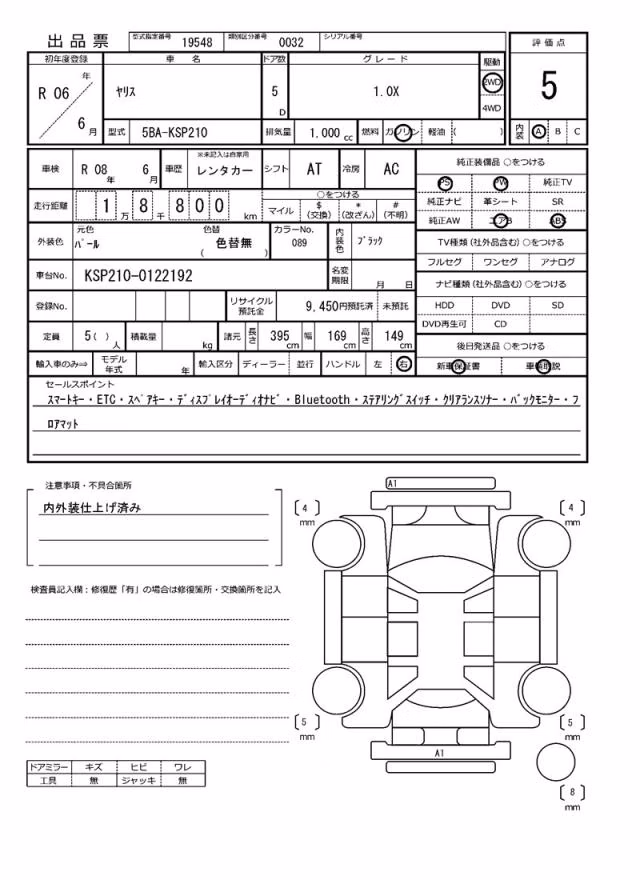 出品票 型式指定番号 19548 類別区分番号 0032 シリアル番号
初年度登録 車名 ドア数 グレード 駆動 評価点
R 06 年 6 月 ヤリス 5 D 1.0X 2WD 4WD 5
型式 5BA-KSP210 排気量 1.000 cc 燃料 ガソリン 軽油 ( ) 内装 A B C
車検 R 08 年 6 月 車歴 ※未記入は自家用 レンタカー シフト AT 冷房 AC
純正装備品 ○をつける
PS PW 純正TV
純正ナビ 革シート SR
純正AW エアB ABS
走行距離 1 万 8 千 8 0 0 km ○をつける マイル $ (交換) * (改ざん) # (不明)
外装色 元色 パール 色替 色替無 ( ) カラーNo. 089 内装色 ブラック
TV種類 (社外品含む) ○をつける
フルセグ ワンセグ アナログ
車台No. KSP210-0122192 名変期限 月 日
ナビ種類 (社外品含む) ○をつける
HDD DVD SD
DVD再生可 CD
登録No. リサイクル預託金 9,450円預託済 未預託
定員 5( ) 人 積載量 kg 諸元 長さ 395 cm 幅 169 cm 高さ 149 cm
後日発送品 ○をつける
新車保証書 車輌取説
輸入車のみ⇒ モデル年式 年 輸入区分 ディーラー 並行 ハンドル 左 右
セールスポイント
スマートキー・ETC・スペアキー・ディスプレイオーディオナビ・Bluetooth・ステアリングスイッチ・クリアランスソナー・バックモニター・フ
ロアマット
注意事項・不具合箇所
内外装仕上げ済み
検査員記入欄：修復歴「有」の場合は修復箇所・交換箇所を記入
A1
4 mm
4 mm
5 mm
5 mm
A1
8 mm
ドアミラー キズ ヒビ ワレ
工具 無 ジャッキ 無